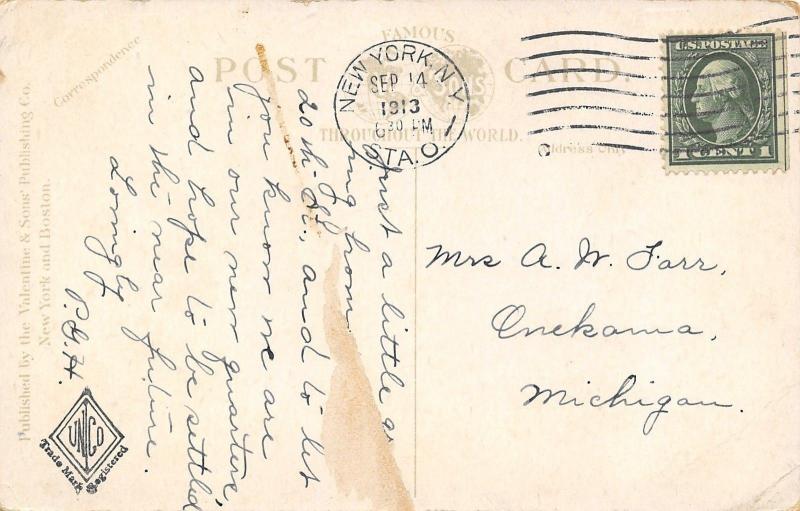 FAMOUS
POST CARD.
THROUGHOUT THE WORLD.
Correspondence
Address Only
NEW YORK, N.Y.
SEP 14
1913
6 30 PM
STA. O.
U.S. POSTAGE
1 CENT 1
Just a little
from
20th St., and to let
you know we are
in our new quarters,
and hope to be settled
in the near future.
Lovingly
P.G.H.
Mrs A. W. Farr,
Onekama,
Michigan.
Published by the Valentine & Sons' Publishing Co.
New York and Boston.
UNCO
Trade Mark Registered